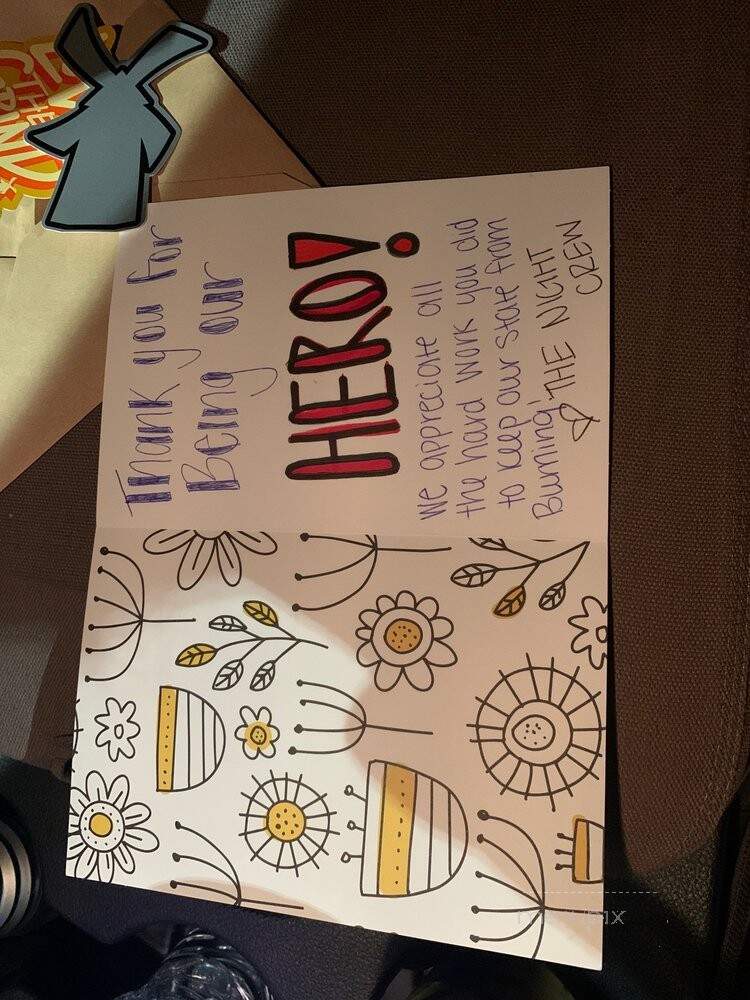 THE
GRIND
Thank you for
Being our
HERO!
We appreciate all
the hard work you did
to keep our state from
Burning!
THE NIGHT
CREW